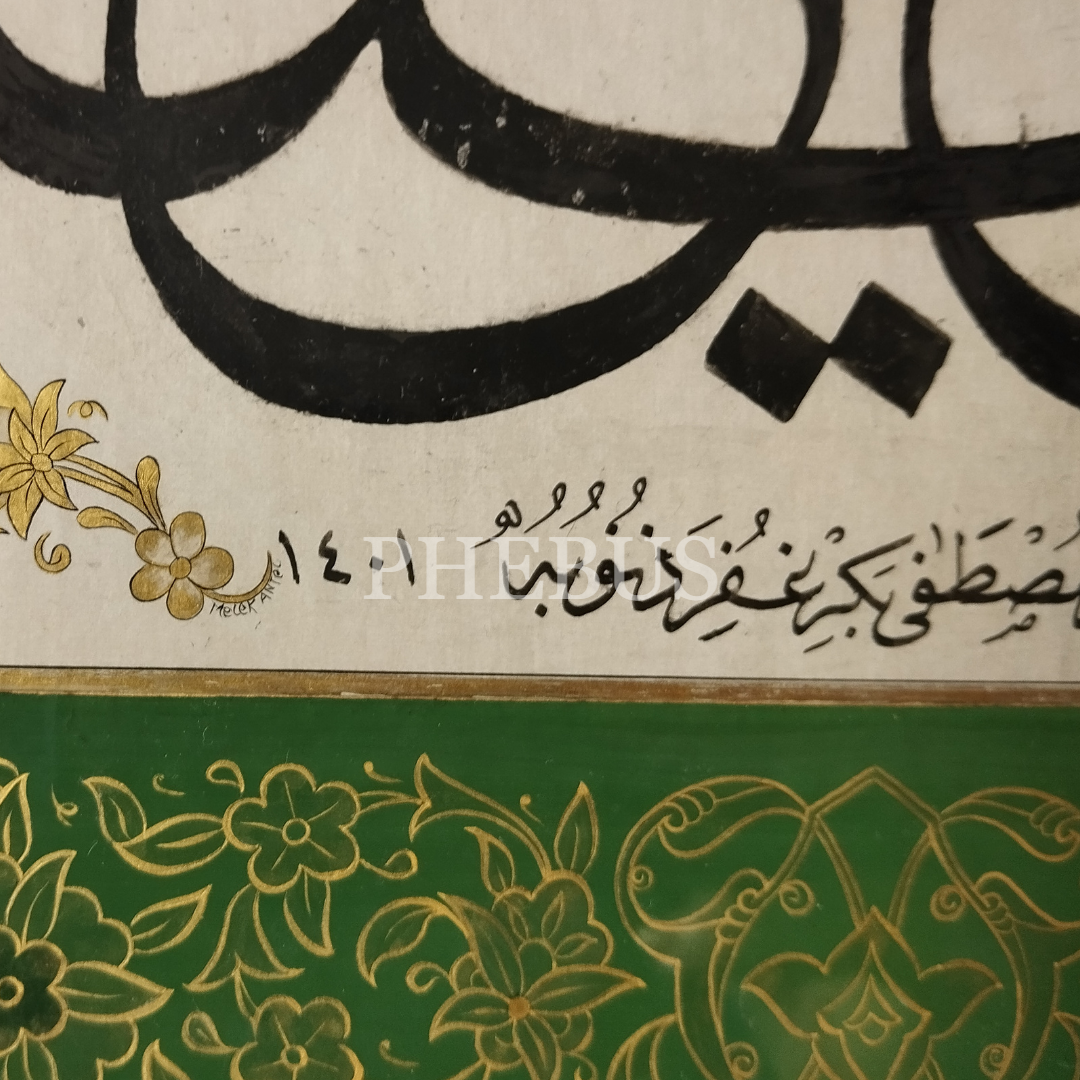 مُصْطَفٰى بَكِرْ غُفِرَ ذُنُوبُهُ ١٤٠١
MELEK ANTEL
PHEBUS